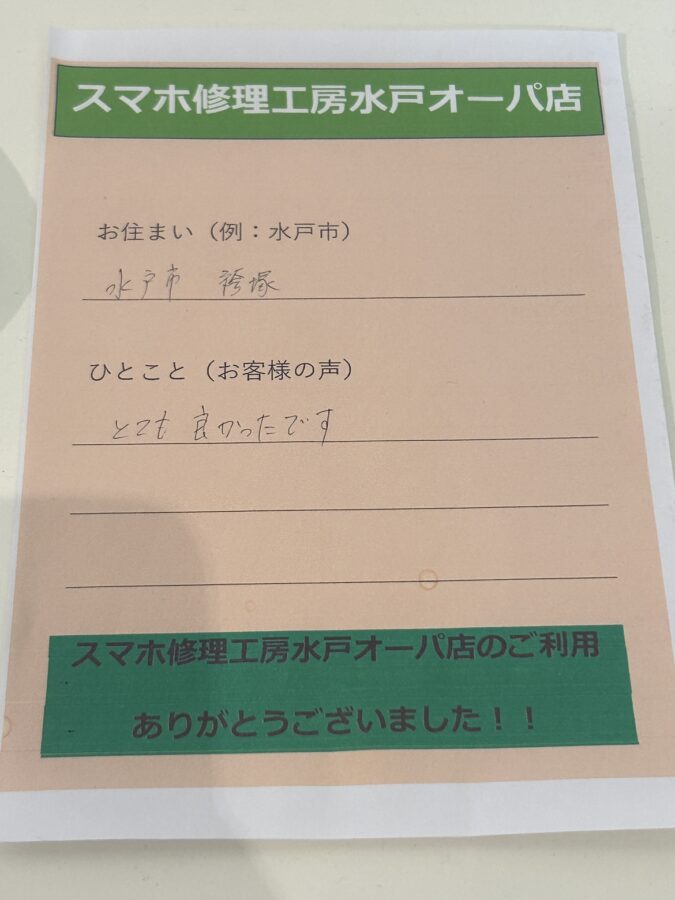 スマホ修理工房水戸オーパ店
お住まい（例：水戸市）
水戸市 袴塚
ひとこと（お客様の声）
とても良かったです
スマホ修理工房水戸オーパ店のご利用
ありがとうございました！！